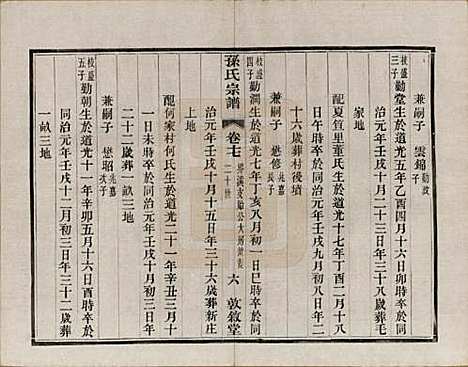 兼嗣子 雲錦勤教
枝盛三子勤堂生於道光五年乙酉四月十六日卯時卒於
同治元年壬戌十月初三日年三十八歲葬毛
家地
配夏萓里童氏生於道光十七年丁酉二月十八
日 時卒於同治元年壬戌九月初八日年二
十六歲葬村後墳
兼嗣子 懋修兆嘉長子
枝盛四子勤濁生於道光七年丁亥八月初一日巳時卒於同
孫氏宗譜
卷七
二十世
六
敦敘堂
治元年壬戌十月十五日年三十六歲葬新庄
上地
配何家村何氏生於道光二十一年辛丑三月十
一日未時卒於同治元年壬戌十月初三日年
二十二歲葬一畝三地
兼嗣子 懋昭兆嘉次子
枝盛五子勤朝生於道光十一年辛卯五月十六日酉時卒於
同治元年壬戌十二月初三日年三十二歲葬
一畝三地